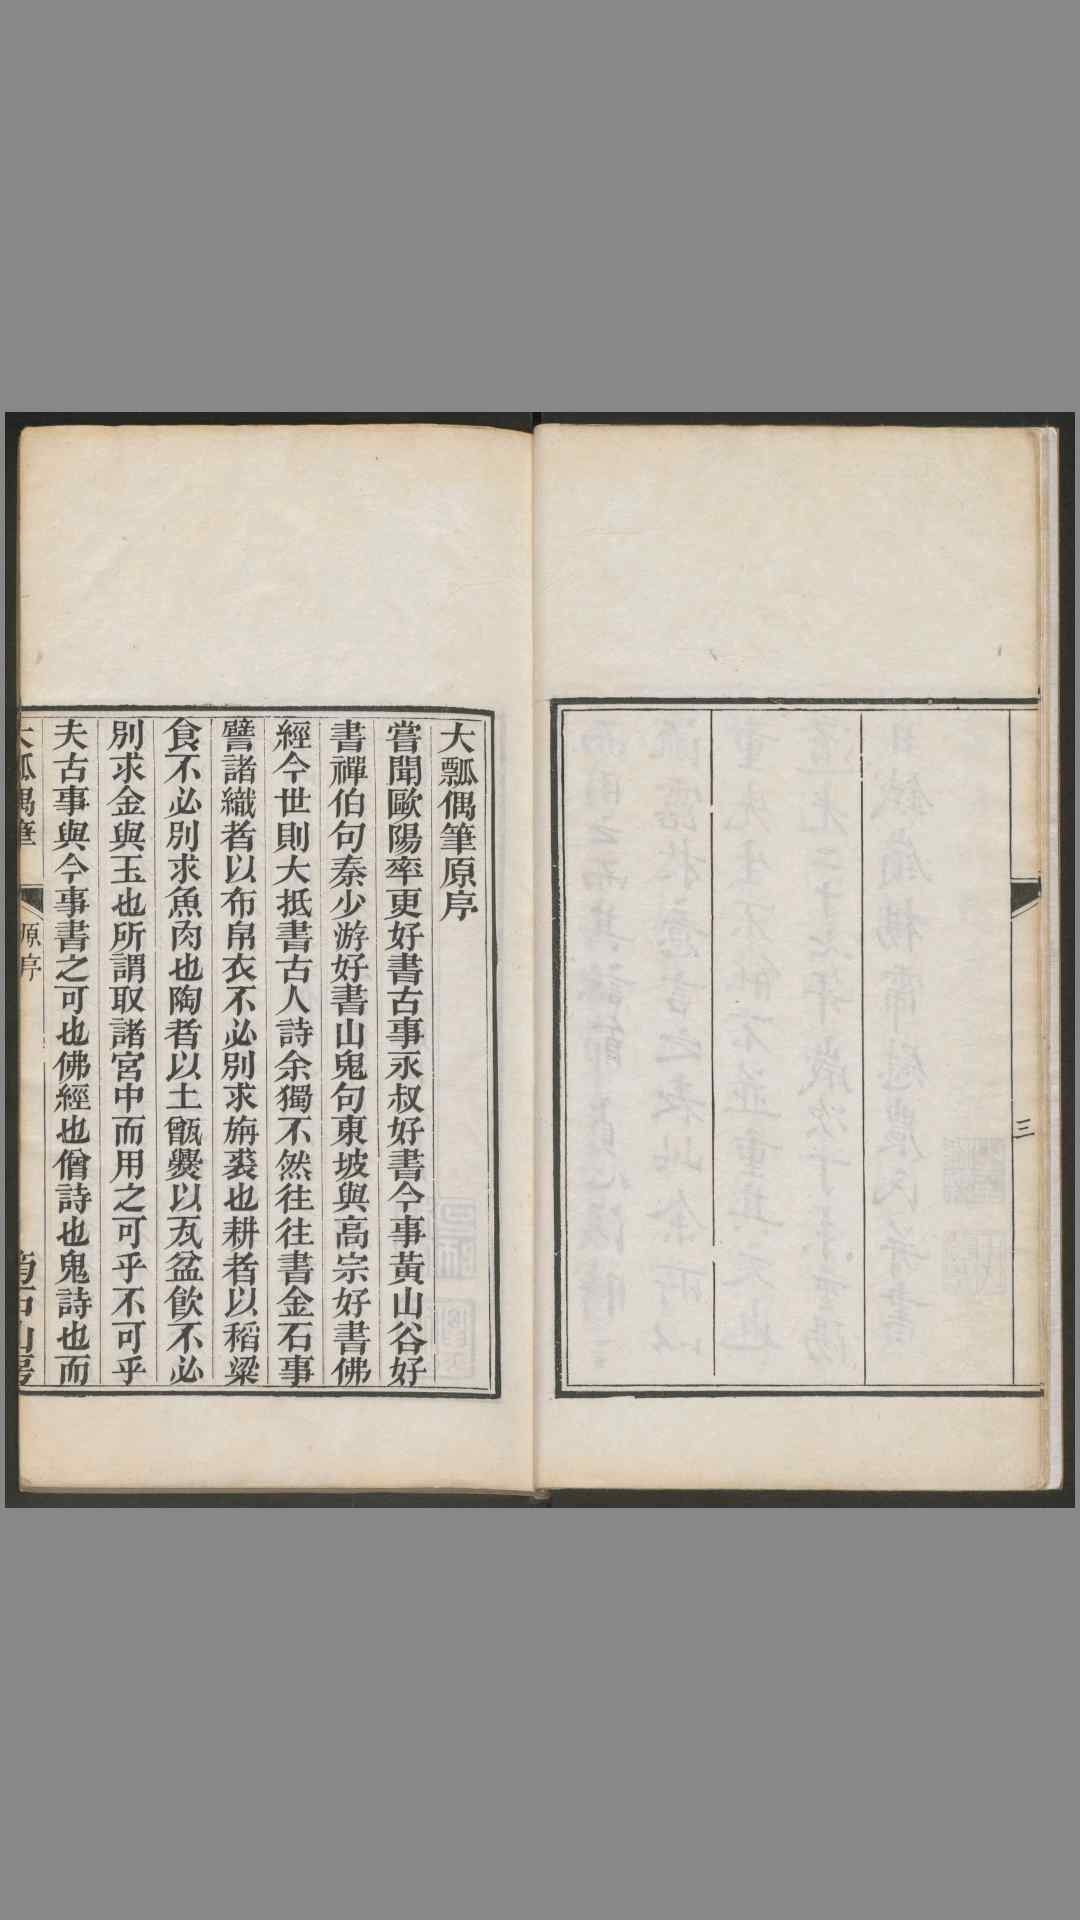 三
大瓢偶筆原序
嘗聞歐陽率更好書古事永叔好書今事黃山谷好
書禪伯句秦少游好書山鬼句東坡與高宗好書佛
經今世則大抵書古人詩余獨不然往往書金石事
譬諸織者以布帛衣不必別求旃裘也耕者以稻粱
食不必別求魚肉也陶者以土甑爨以瓦盆飲不必
別求金與玉也所謂取諸宮中而用之可乎不可乎
夫古事與今事書之可也佛經也僧詩也鬼詩也而
大瓢偶筆 原序